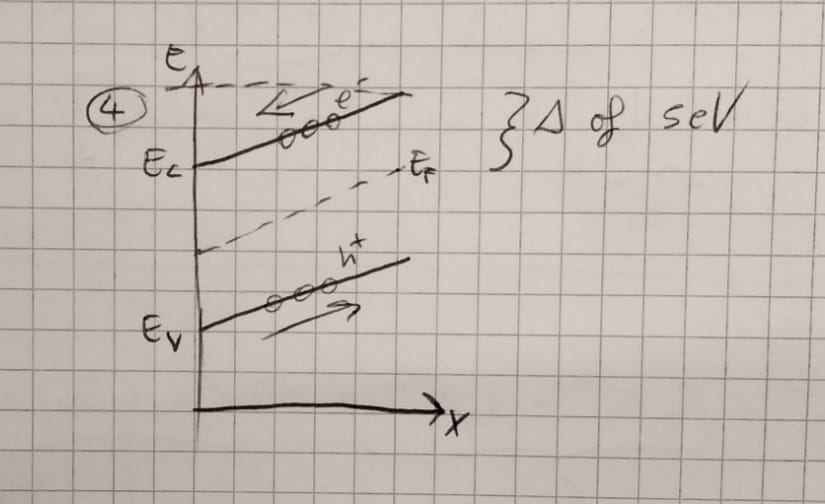 E
④ e⁻ } Δ of 5eV
E_C E_F
h⁺
E_V
x